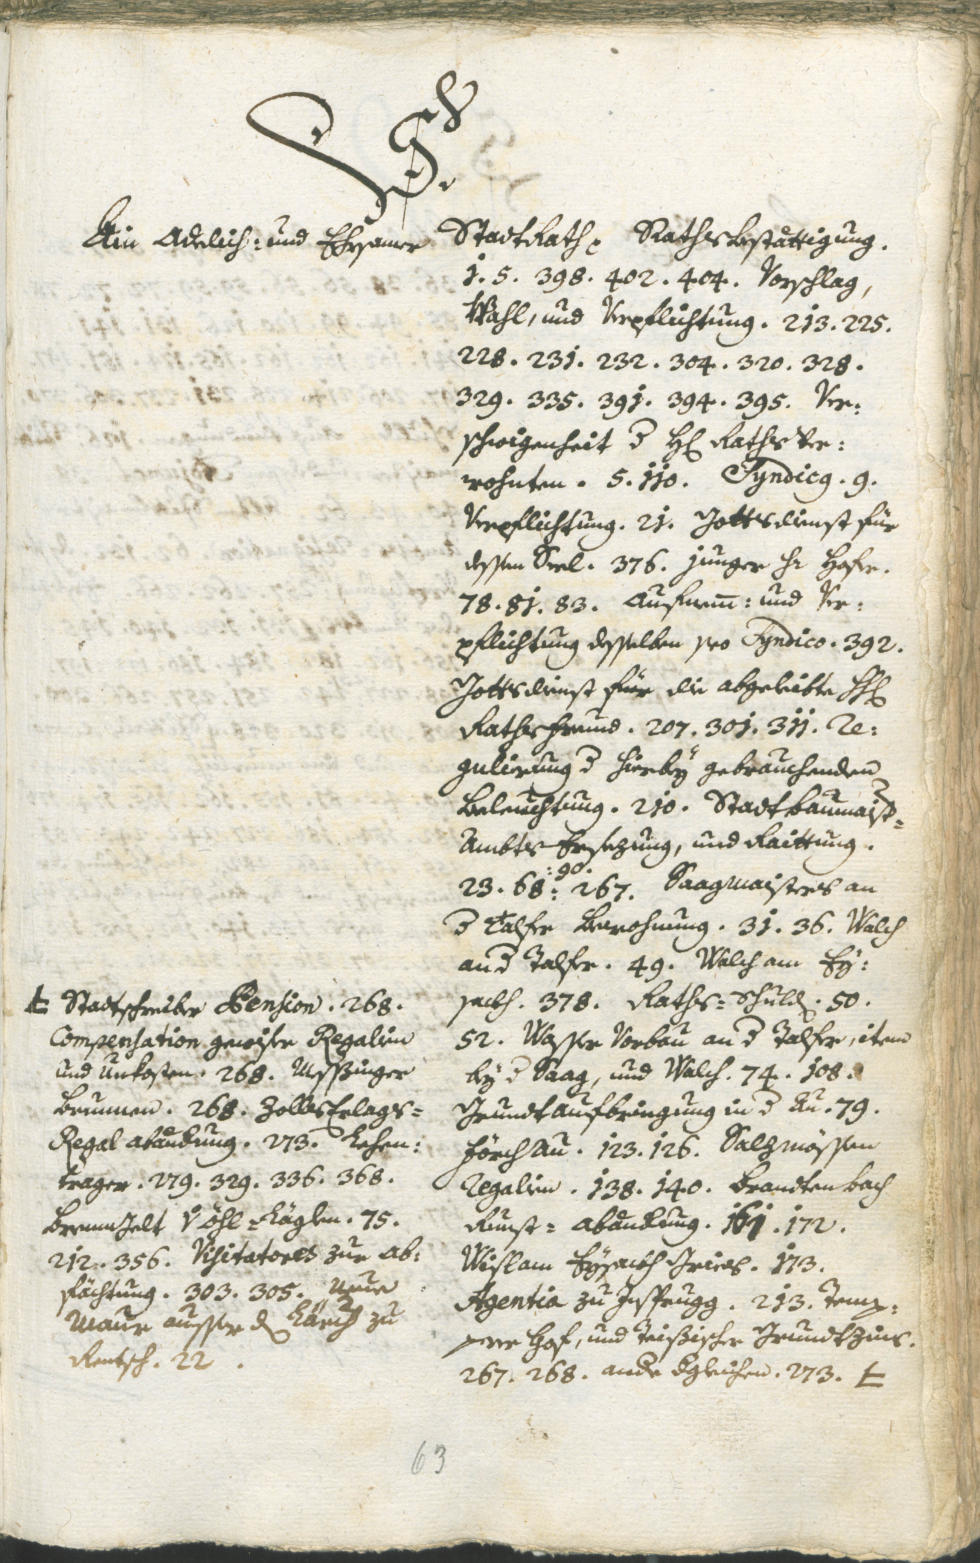 S
Ein Adelich: und Ehrsamer StadtRath. Rathsbestättigung.
1. 5. 398. 402. 404. Vorschlag,
Wahl, und Verpflichtung. 213. 225.
228. 231. 232. 304. 320. 328.
329. 335. 391. 394. 395. Ver:
schwigenheit d H Raths Ver:
wohnten. 5. 110. Syndicg. 9.
Verpflichtung. 21. Gottsdienst für
dessen Seel. 376. junger hr Hofer.
78. 81. 83. Aufnem: und Ver:
pflichtung desselben pro Syndico. 392.
Gottsdienst für die abgeleibte HH
Rathsfreund. 207. 301. 311. Re:
gulierung d hierbey gebrauchenden
Beleuchtung. 210. Stadtbaumaist=
Ambts Ersezung, und Raittung.
23. 68 :90.: 267. Saagmaisters an
d Talfer Bewohnung. 31. 36. Walch
an d Talfer. 49. Walch am Ey:
sackh. 378. Raths=Schuld. 50.
52. Wasser Vorbau an d Talfer, item
bey d Saag, und Walch. 74. 108.
Grundt aufbringung in d Au. 79.
förch Au. 123. 126. Salzmässen
Regalien. 138. 140. Brandtenbach
Runst= abänderung. 161. 172.
Wisl am Eysackh Gries. 173.
Agentia zu Insprugg. 213. Temp:
Hof, und Grundtzins.
267. 268. ande dgleichen. 273. t
t Stadtschreiber Pension. 268.
Compensation gewiser Regalien
und Unkosten. 268. Messinger
Brunnen. 268. Zohls Erlags=
Regal abänderung. 273. Lehen:
trager. 279. 329. 336. 368.
Brennzelt Öhl=Käglen. 75.
212. 356. Visitatores zur ab:
fächtung. 303. 305. Neue
Maur ausser d Kürch zu
Rentsch. 22.
63